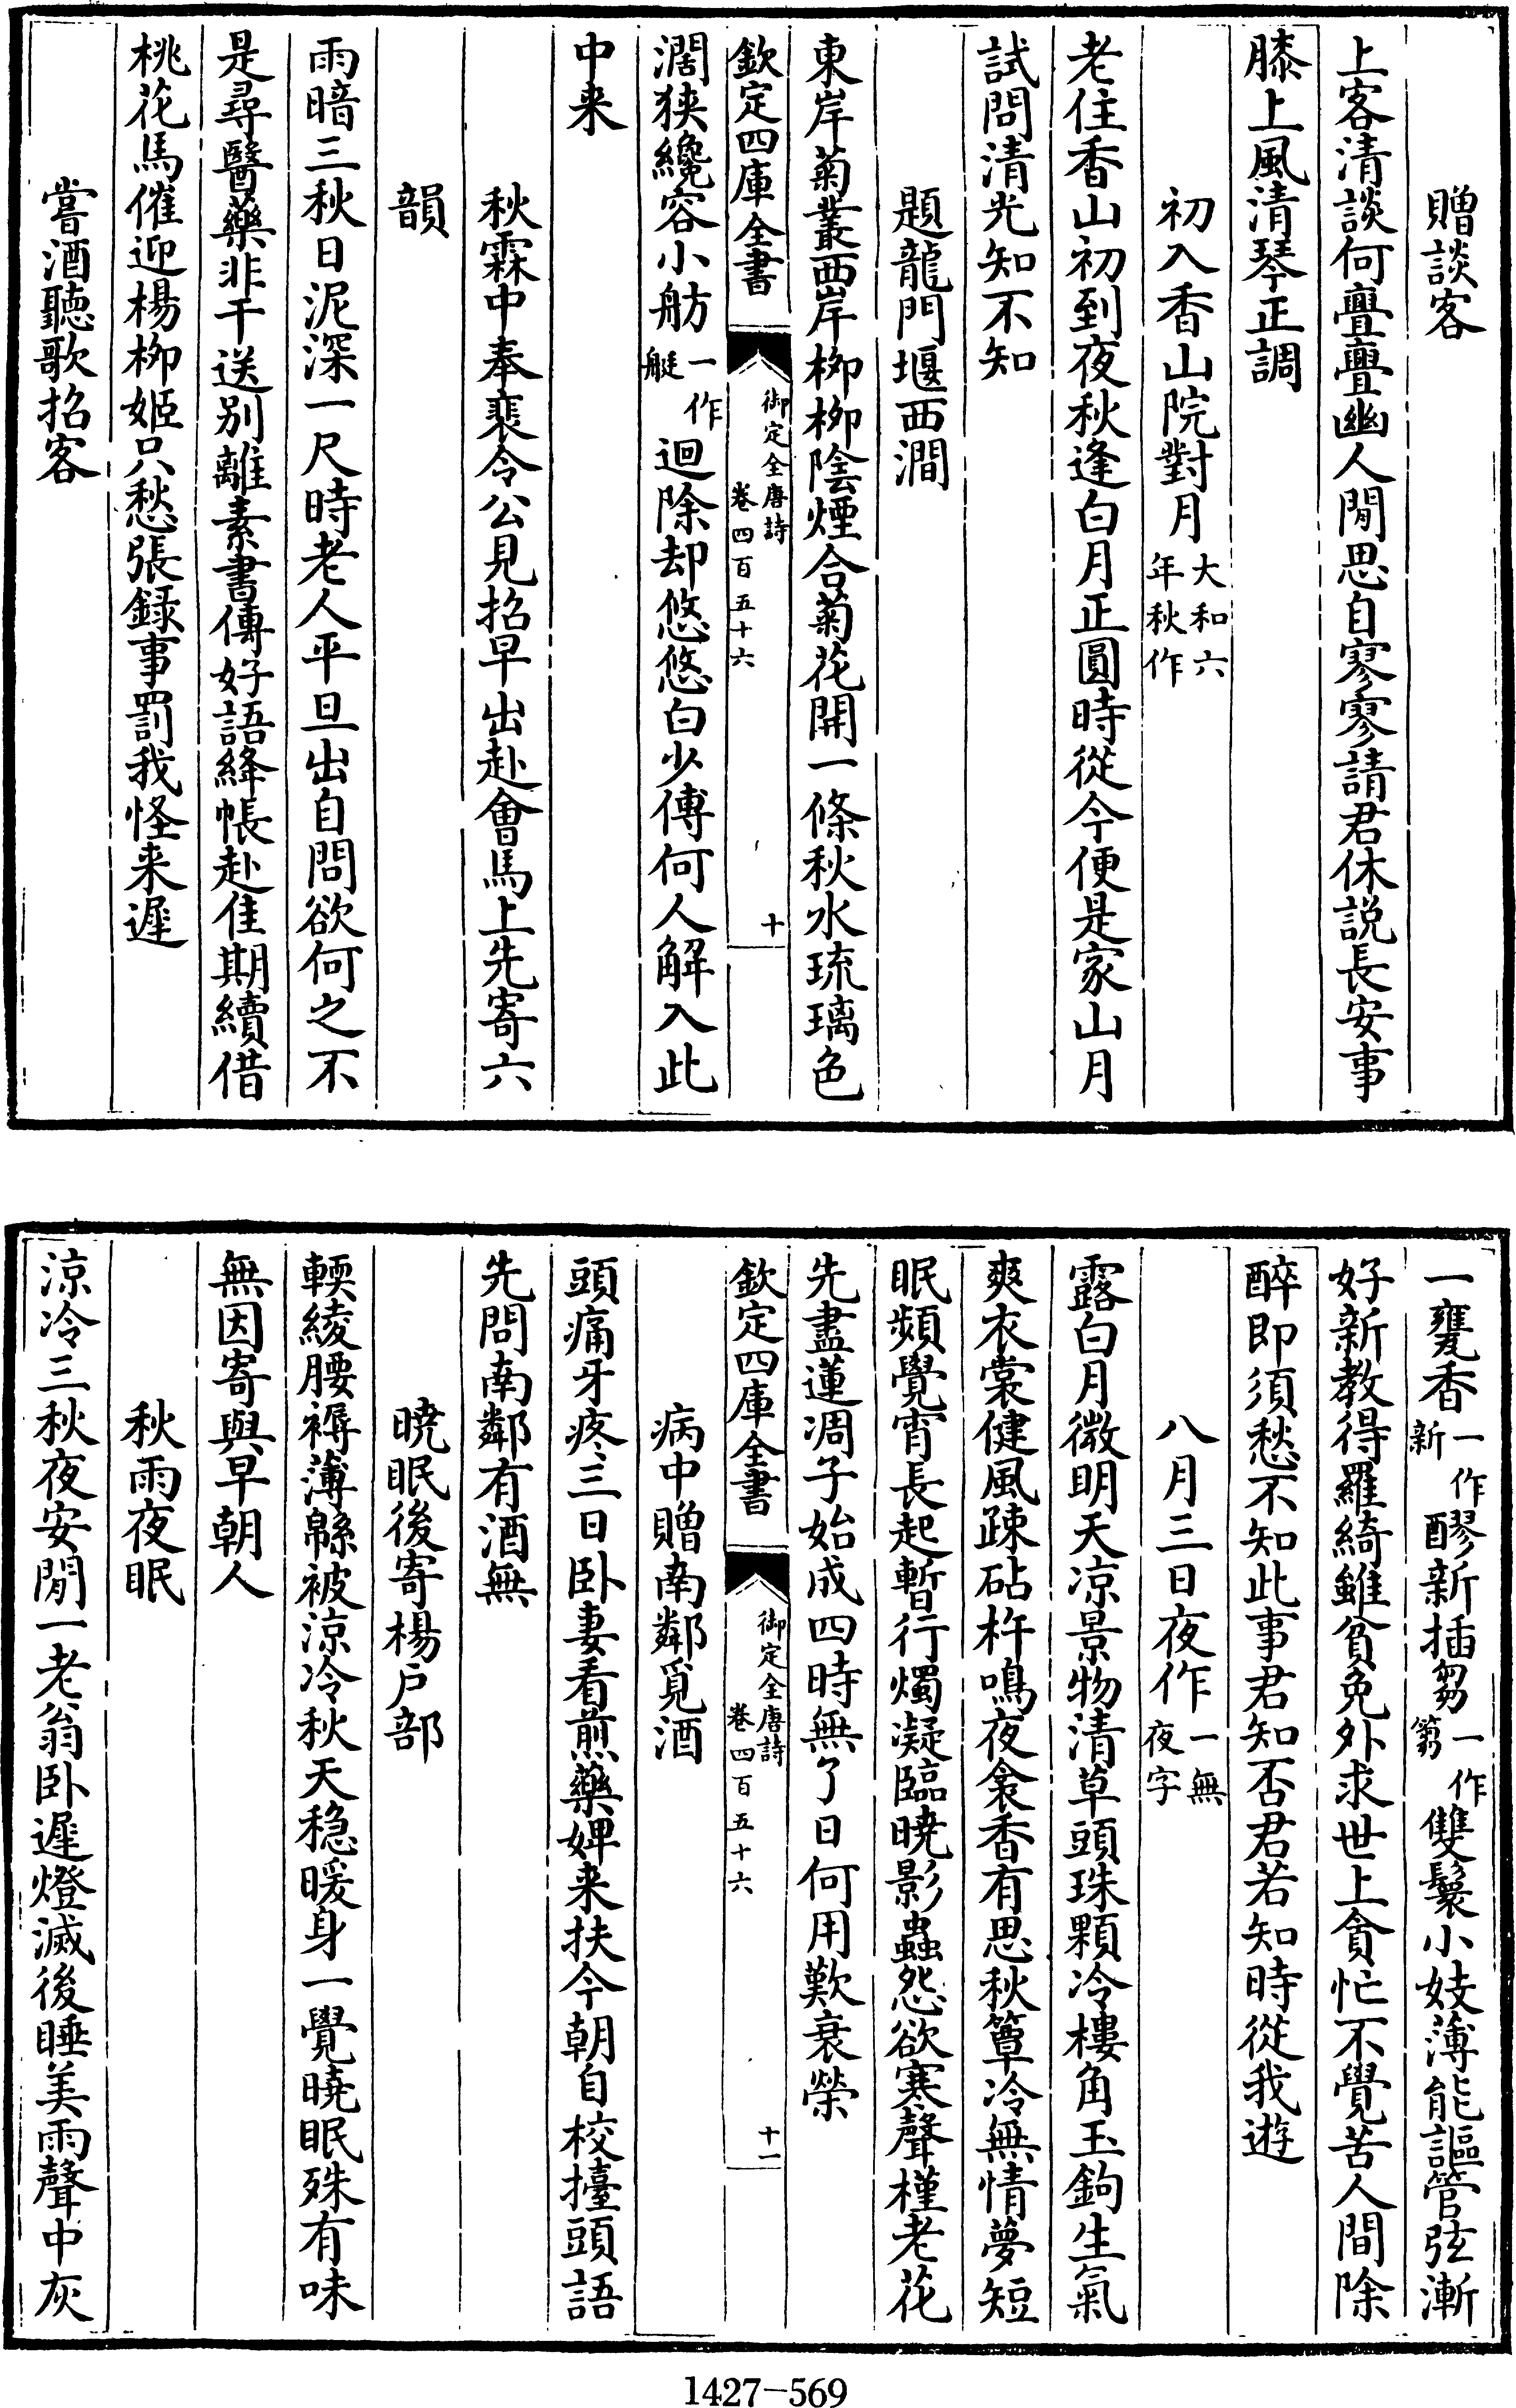 贈談客
上客清談何亹亹幽人閒思自寥寥請君休説長安事
膝上風清琴正調
初入香山院對月大和六年秋作
老住香山初到夜秋逢白月正圓時從今便是家山月
試問清光知不知
題龍門堰西澗
東岸菊叢西岸柳柳陰煙合菊花開一條秋水琉璃色
欽定四庫全書
御定全唐詩
卷四百五十六
十
濶狹纔容小舫一作艇迴除却悠悠白少傅何人解入此
中来
秋霖中奉裴令公見招早出赴會馬上先寄六
韻
雨暗三秋日泥深一尺時老人平旦出自問欲何之不
是尋醫藥非干送别離素書傳好語絳帳赴佳期續借
桃花馬催迎楊柳姬只愁張録事罰我怪来遲
嘗酒聽歌招客
一甕香一作新醪新插芻一作篘雙鬟小妓薄能謳管弦漸
好新教得羅綺雖貧免外求世上貪忙不覺苦人間除
醉即須愁不知此事君知否君若知時從我遊
八月三日夜作一無夜字
露白月微明天凉景物清草頭珠顆冷樓角玉鉤生氣
爽衣裳健風疎砧杵鳴夜衾香有思秋簟冷無情夢短
眠頻覺宵長起暫行燭凝臨曉影蟲怨欲寒聲槿老花
先盡蓮凋子始成四時無了日何用歎衰榮
欽定四庫全書
御定全唐詩
卷四百五十六
十一
病中贈南鄰覓酒
頭痛牙疼三日卧妻看煎藥婢来扶今朝自校擡頭語
先問南鄰有酒無
曉眠後寄楊戸部
輭綾腰褥薄緜被凉冷秋天穏暖身一覺曉眠殊有味
無因寄與早朝人
秋雨夜眠
凉冷三秋夜安閒一老翁卧遲燈滅後睡美雨聲中灰
1427-569